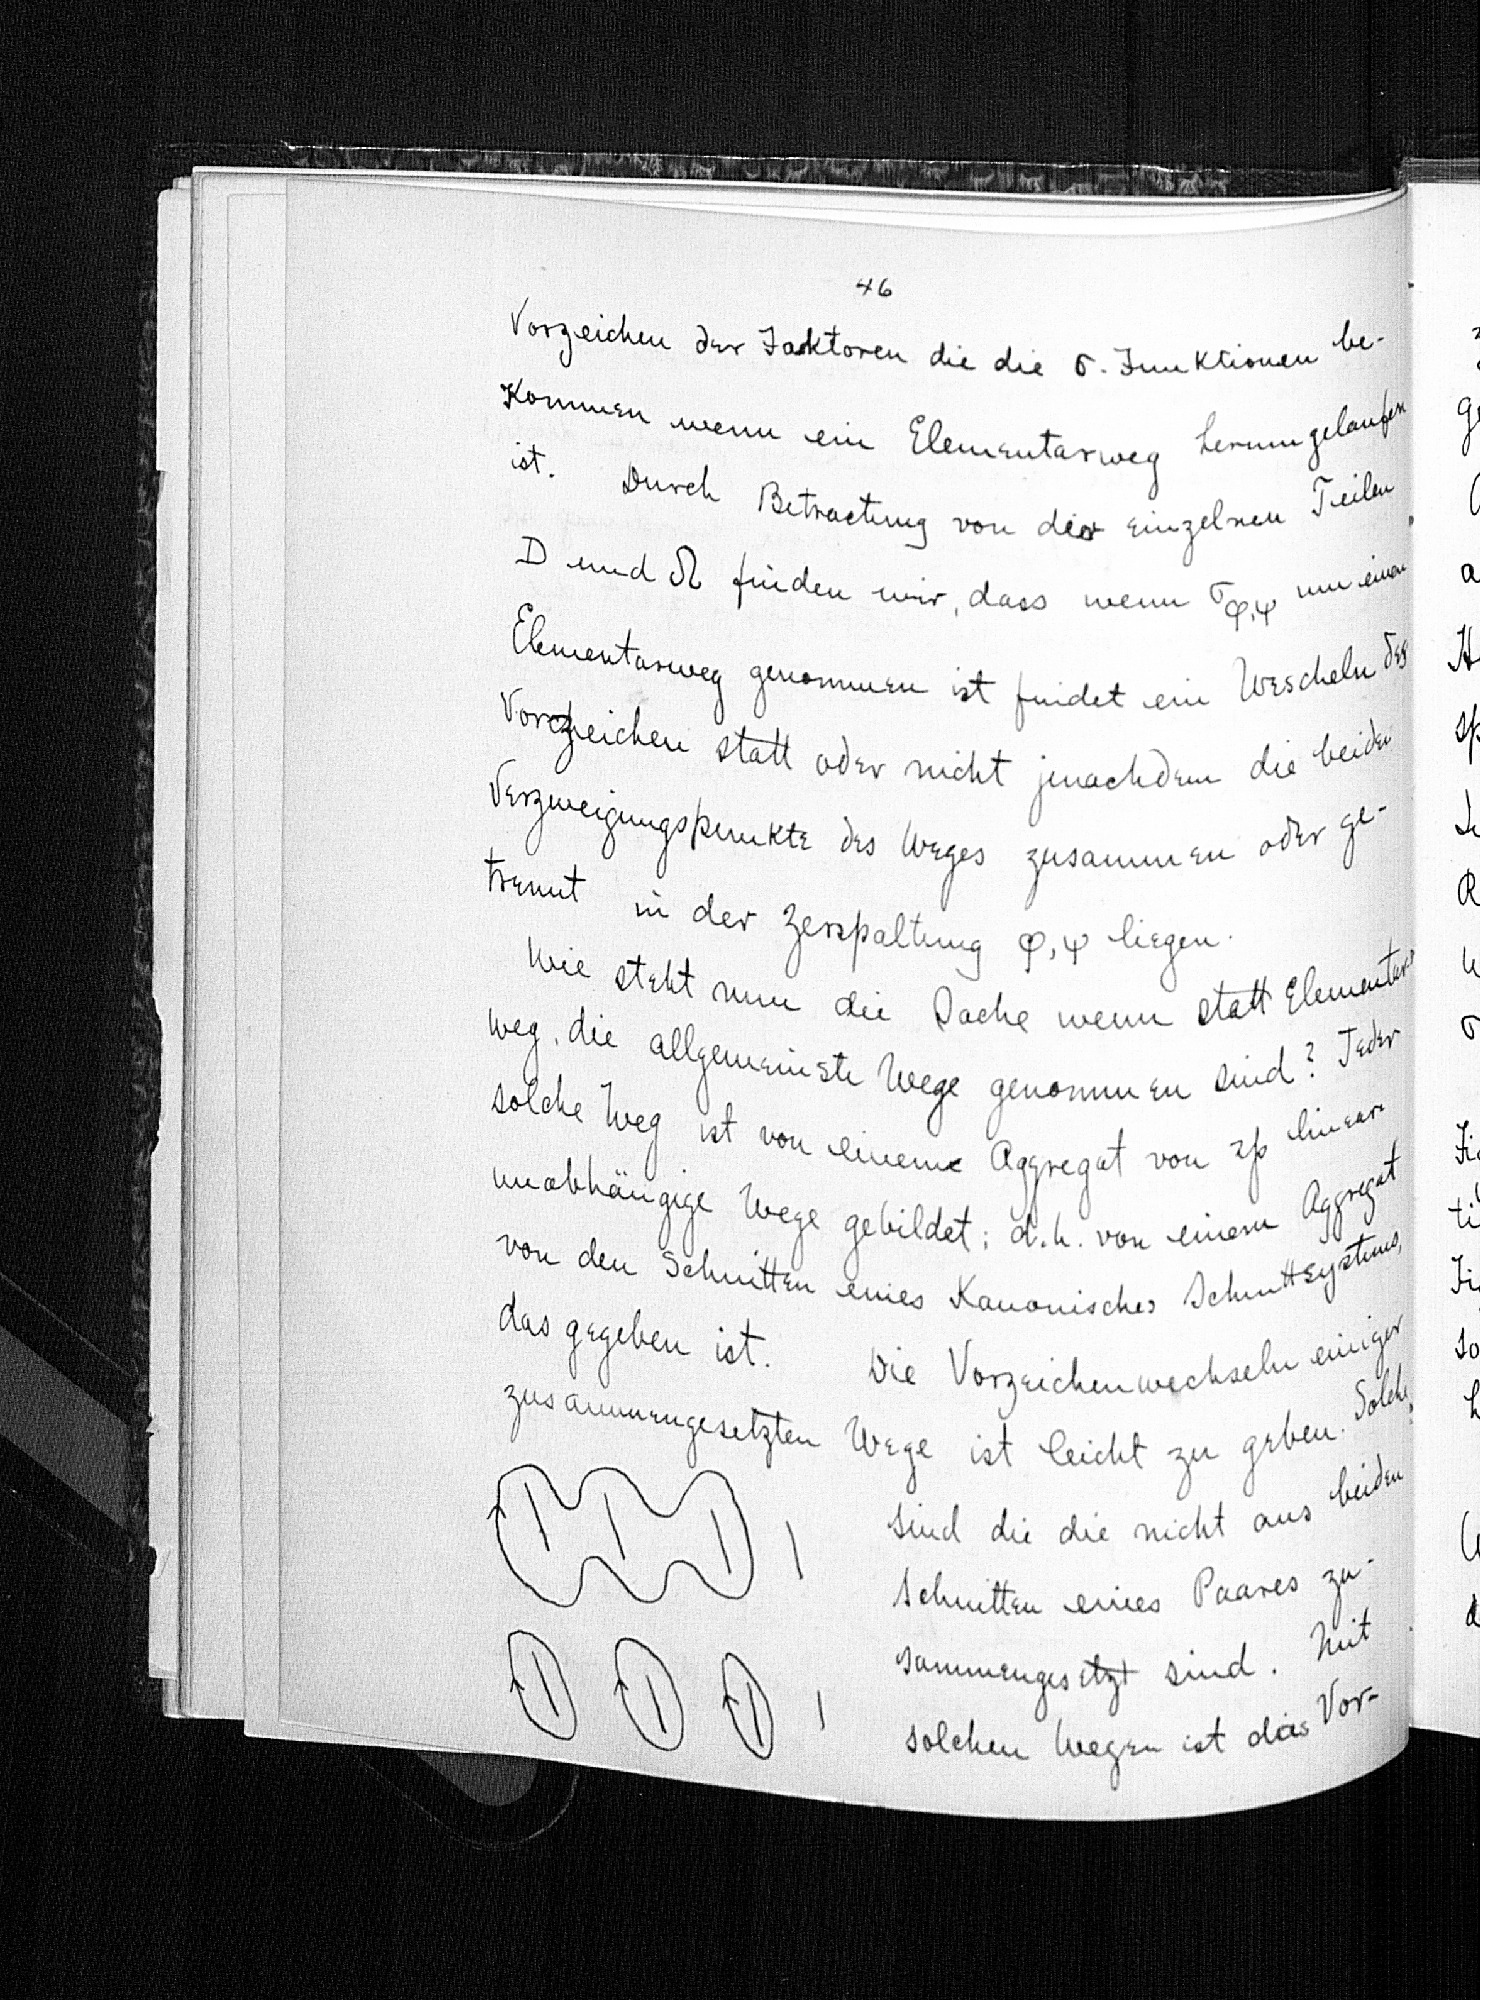 46
Vorzeichen der Faktoren die die σ-Funktionen be-
kommen wenn ein Elementarweg herumgelaufen
ist. Durch Betractung von der einzelnen Teilen
D und Ω finden wir, dass wenn σφ,ψ um einen
Elementarweg genommen ist findet ein Wescheln des
Vorzeichen statt oder nicht jenachdem die beiden
Verzweigungspunkte des Weges zusammen oder ge-
trennt in der Zerspaltung φ,ψ liegen.
Wie steht nun die Sache wenn statt Elementar-
weg, die allgemeinste Wege genommen sind? Jeder
solche Weg ist von einem Aggregat von 2p linear
unabhängige Wege gebildet; d.h. von einem Aggregat
von den Schnitten eines Kanonisches Schnittsystems,
das gegeben ist. Die Vorzeichenwechseln einiger
zusammengesetzten Wege ist leicht zu geben. Solche
sind die die nicht aus beiden
Schnitten eines Paares zu-
sammengesetzt sind. Mit
solchen Wegen ist das Vor-